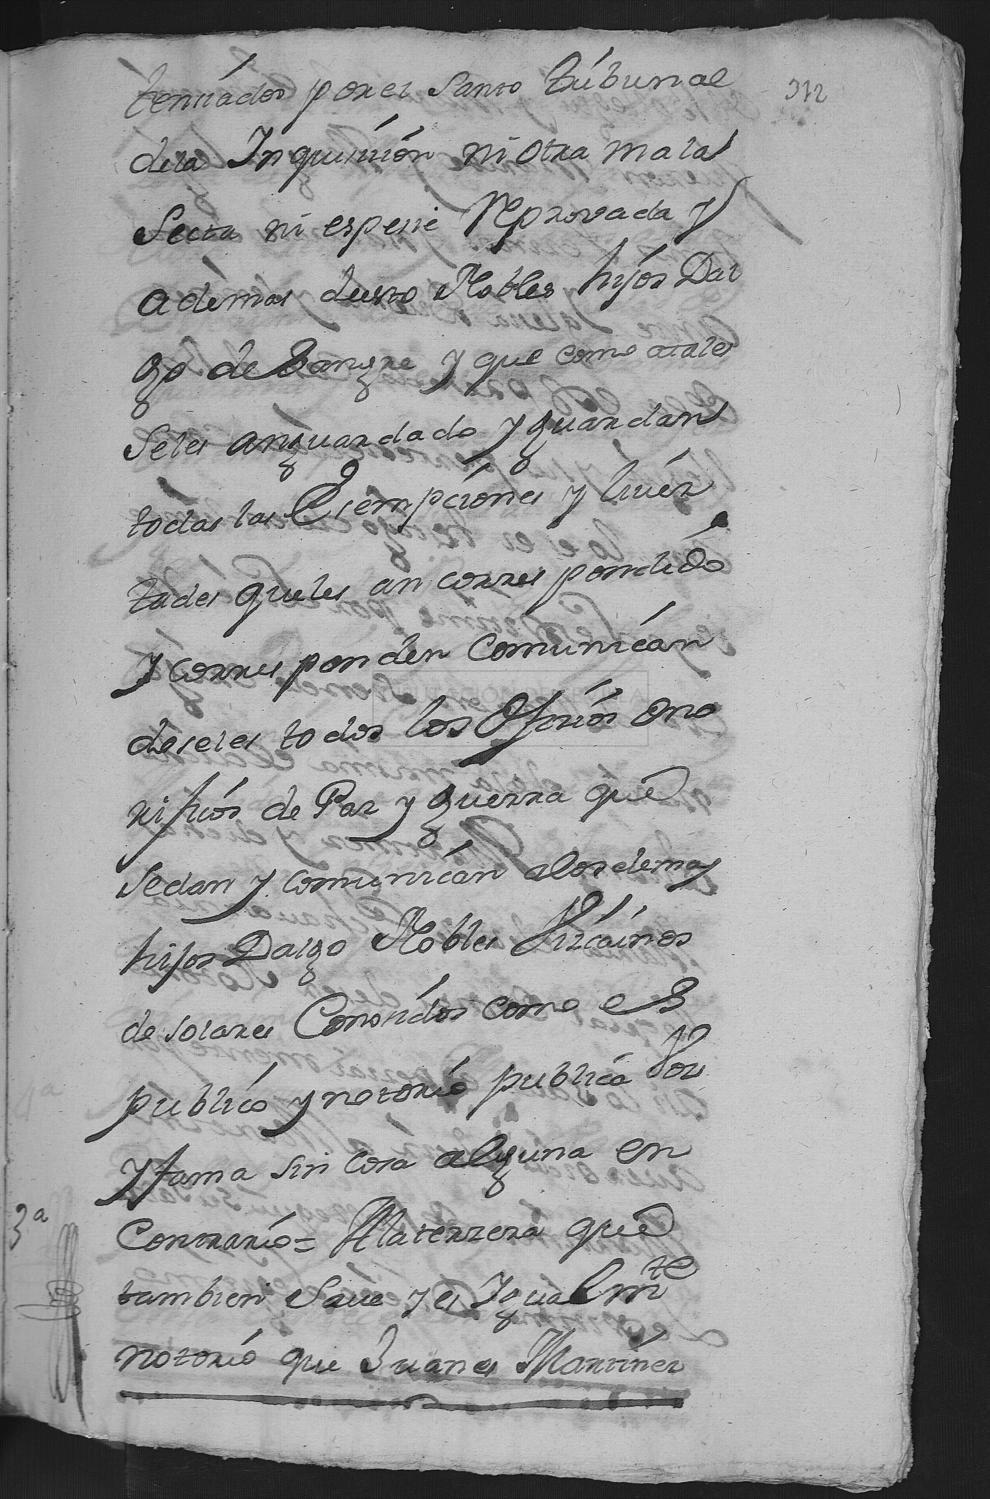 312
tenciados por el Santo tribunal
dela Inquisición ni otra mala
Secta ni espesie Reprovada y
ademas desto Nobles hijos Dal
go de Sangre y que como atales
seles anguardado y guardan
todas las Esempciones y liver
tades queles an correspondido
y corresponden Comunican
doseles todos los Ofizios ono
rificos de Paz y guerra que
sedan y comunican alosdemas
hijos Dalgo Nobles Vizcainos
de solares Conocidos como es
publico y notorio publica Voz
y fama sin cosa alguna en
Contrario = Alaterzera que
3ª
tambien Save y es Igualmte
notorio que Juanes Martinez